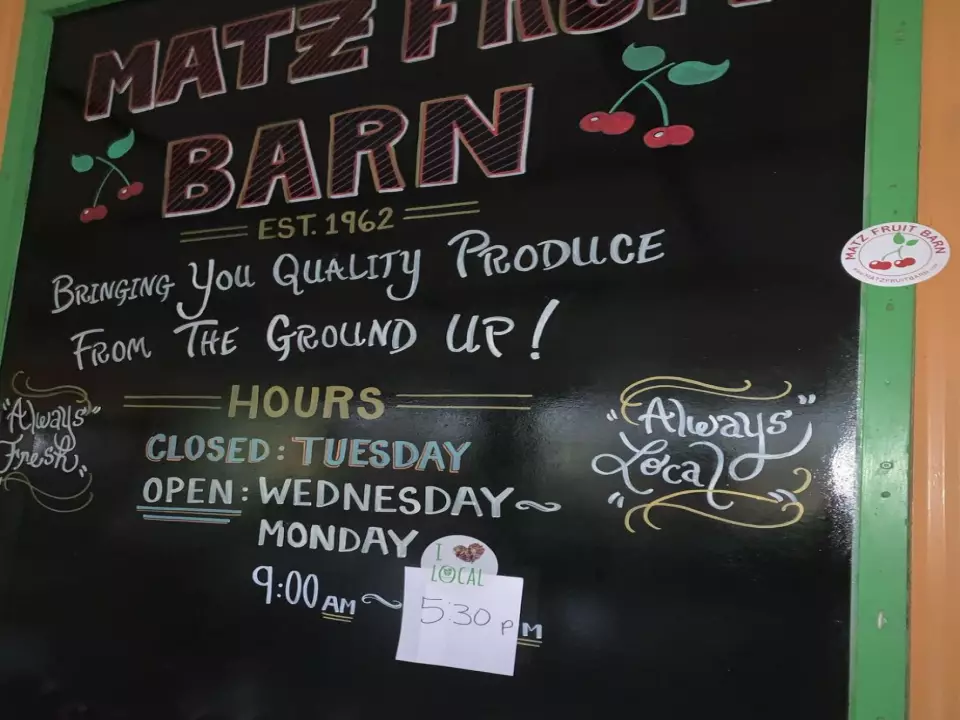 MATZ FRUIT
BARN
EST. 1962
BRINGING YOU QUALITY PRODUCE
FROM THE GROUND UP!
"Always
Fresh"
HOURS
CLOSED: TUESDAY
OPEN: WEDNESDAY~
MONDAY
9:00 AM ~ 5:30 PM
I
LOCAL
"Always"
"Local"
MATZ FRUIT BARN